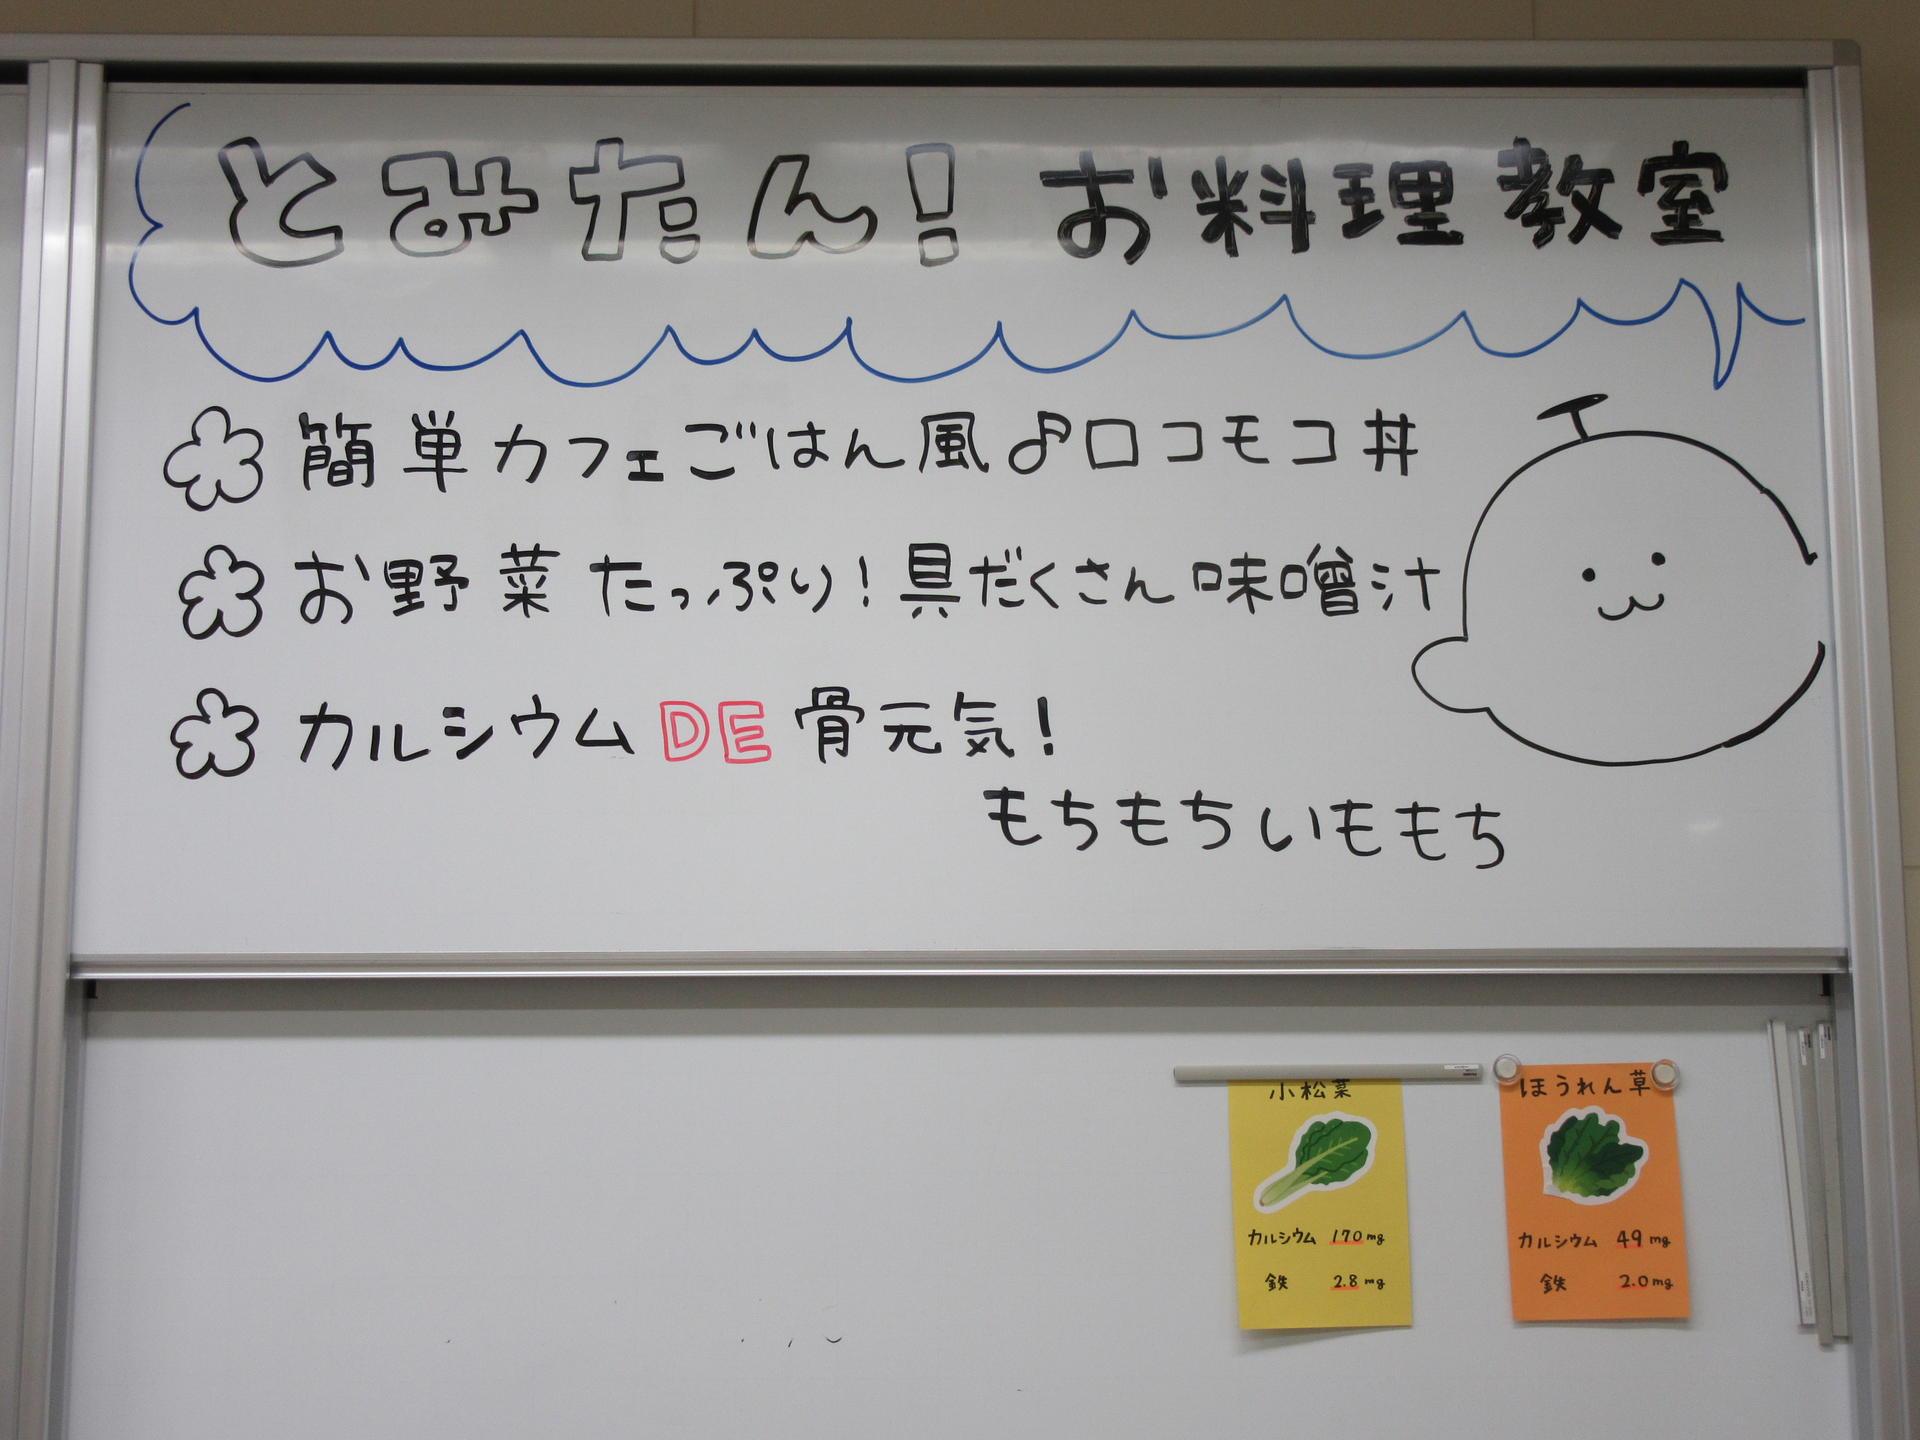 とみたん！お料理教室
簡単カフェごはん風♪ロコモコ丼
お野菜たっぷり！具だくさん味噌汁
カルシウムDE骨元気！
もちもちいももち
小松菜
カルシウム 170mg
鉄 2.8mg
ほうれん草
カルシウム 49mg
鉄 2.0mg